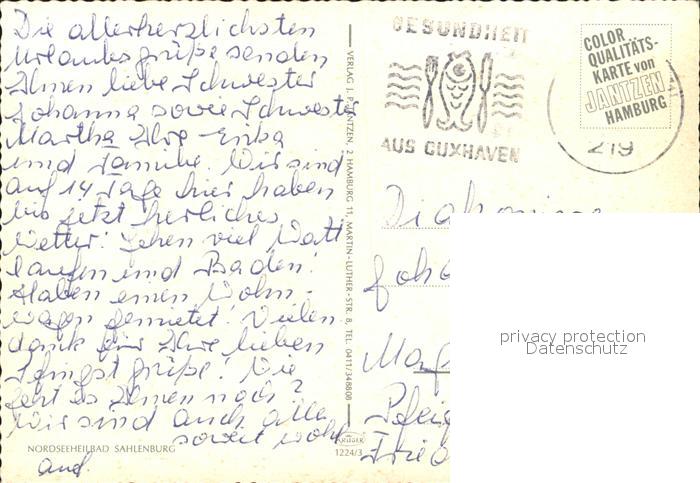 Die allerherzlichsten
Urlaubsgrüße senden
Ihnen liebe Schwester
Johanna sowie Schwester
Martha Ihre Erika
und Familie. Wir sind
auf 14 Tage hier haben
bis jetzt herliches
Wetter! Gehen viel Watt
laufen und Baden!
Haben einen Wohn-
wagen gemietet! Vielen
dank für Ihre lieben
Pfingst grüße! Wie
geht es Ihnen noch?
Wir sind auch alle
soweit wohl
auf.
NORDSEEHEILBAD SAHLENBURG
VERLAG J. JANTZEN, 2 HAMBURG 11, MARTIN-LUTHER-STR. 8, TEL. 0411/348800
KRÜGER
1224/3
GESUNDHEIT
AUS CUXHAVEN
COLOR
QUALITÄTS-
KARTE von
JANTZEN
HAMBURG
219
Diakonisse
Joh
Mag
Pfeig
Fried
privacy protection
Datenschutz